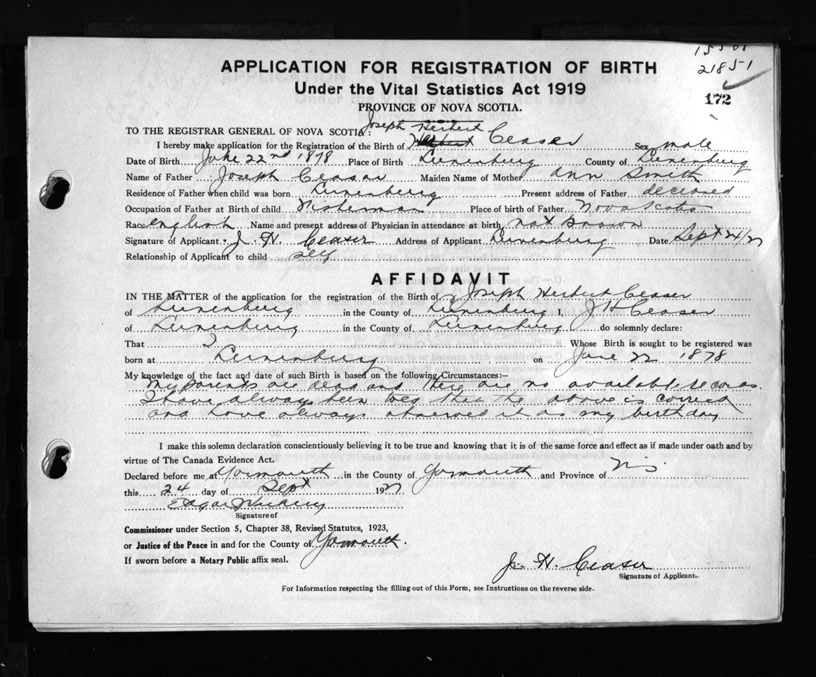 21851
172
APPLICATION FOR REGISTRATION OF BIRTH
Under the Vital Statistics Act 1919
PROVINCE OF NOVA SCOTIA.
Joseph Herbert
TO THE REGISTRAR GENERAL OF NOVA SCOTIA:
I hereby make application for the Registration of the Birth of Ceaser Sex male
Date of Birth June 22nd 1878 Place of Birth Lunenburg County of Lunenburg
Name of Father Joseph Ceaser Maiden Name of Mother Ann Smith
Residence of Father when child was born Lunenburg Present address of Father deceased
Occupation of Father at Birth of child Fisherman Place of birth of Father Nova Scotia
Race English Name and present address of Physician in attendance at birth not known
Signature of Applicant J. H. Ceaser Address of Applicant Lunenburg Date Sept 24/27
Relationship of Applicant to child Self
AFFIDAVIT
IN THE MATTER of the application for the registration of the Birth of Joseph Herbert Ceaser
of Lunenburg in the County of Lunenburg I, J H Ceaser
of Lunenburg in the County of Lunenburg do solemnly declare:
That I Whose Birth is sought to be registered was
born at Lunenburg on June 22 1878
My knowledge of the fact and date of such Birth is based on the following Circumstances:—
My parents are dead and there are no available records.
I have always been told that the above is correct
and have always observed it as my birthday
I make this solemn declaration conscientiously believing it to be true and knowing that it is of the same force and effect as if made under oath and by
virtue of The Canada Evidence Act.
Declared before me at Yarmouth in the County of Yarmouth and Province of N.S.
this 24 day of Sept 1927
Signature of
Commissioner under Section 5, Chapter 38, Revised Statutes, 1923,
or Justice of the Peace in and for the County of Yarmouth.
If sworn before a Notary Public affix seal.
J. H. Ceaser
Signature of Applicant.
For Information respecting the filling out of this Form, see Instructions on the reverse side.